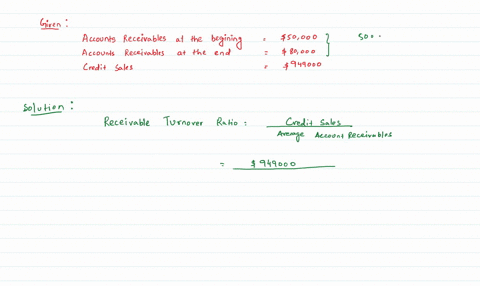 Given:
Accounts Receivables at the begining = $50,000 50..
Accounts Receivables at the end = $80,000
Credit Sales = $949000
Solution:
Receivable Turnover Ratio = Credit Sales
Average Account Receivables
= $949000